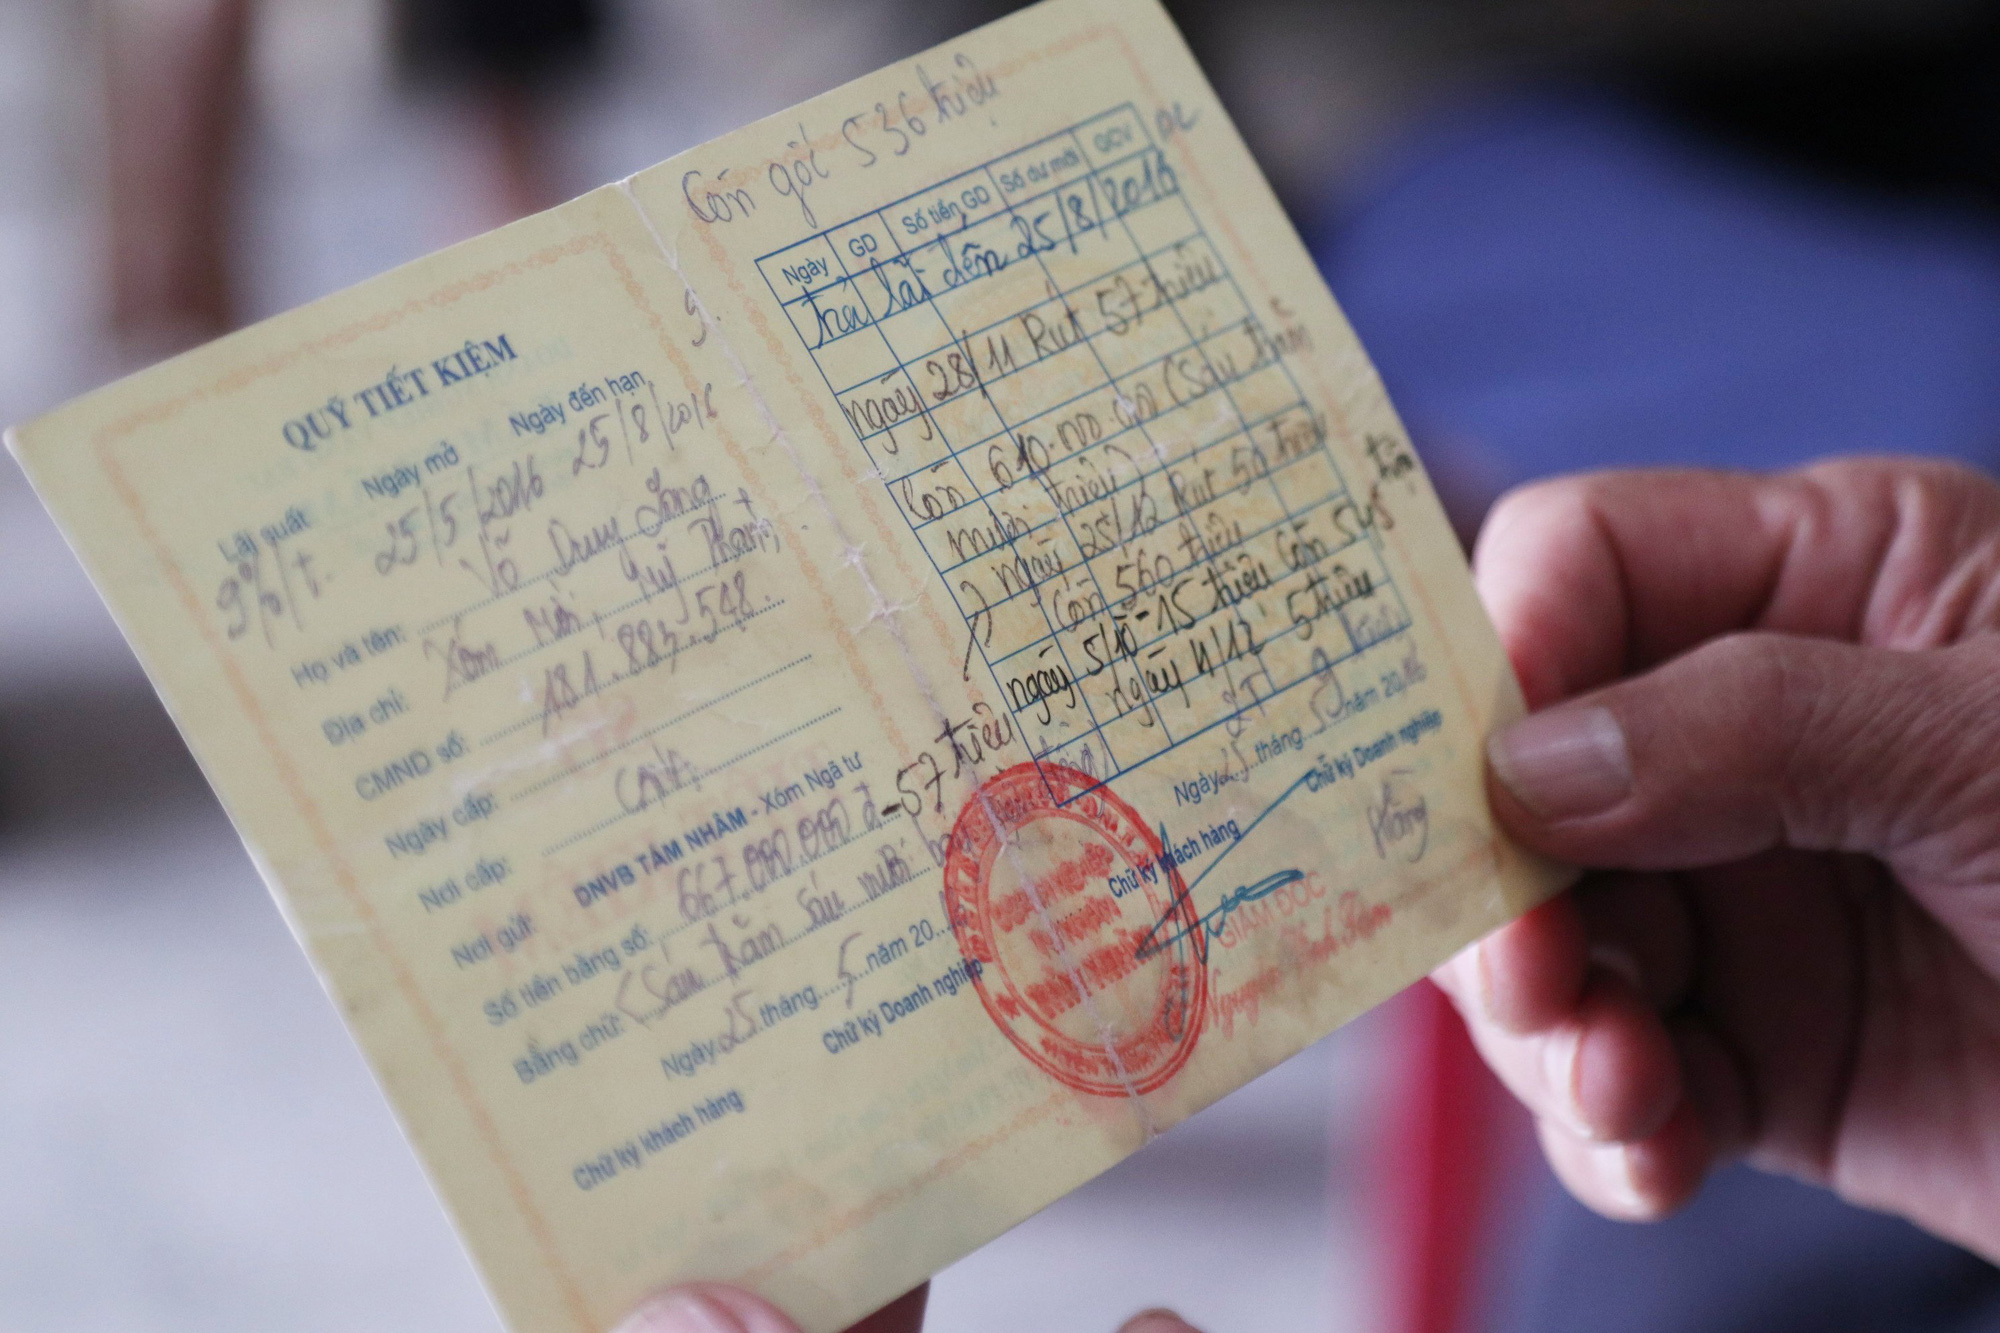 QUỸ TIẾT KIỆM
Lãi suất Ngày mở Ngày đến hạn
9%/t. 25/5/2016 25/8/2016
Họ và tên: Võ Duy
Địa chỉ: Xóm Mới,
CMND số: 181.883.548.
Ngày cấp:
Nơi cấp:
Nơi gửi: DNVB TÁM NHÂM - Xóm Ngã tư
Số tiền bằng số: 667.000.000 đ -57 triệu
Bằng chữ: (Sáu trăm sáu mươi bảy
Ngày 25 tháng 5 năm 20
Chữ ký khách hàng Chữ ký Doanh nghiệp
Còn gốc 536 triệu
Ngày GD Số tiền GD Số dư mới GCV
trả lãi đến 25/8/2016
ngày 28/11 Rút 57 triệu
Còn 610.000.000 (Sáu trăm
mười triệu)
ngày 25/12 Rút 50 triệu
Còn 560 triệu
ngày 5/10 -15 triệu Còn 545 triệu
ngày 4/12 5 triệu
Ngày 25 tháng 5 năm 2016
Chữ ký khách hàng Chữ ký Doanh nghiệp
GIÁM ĐỐC